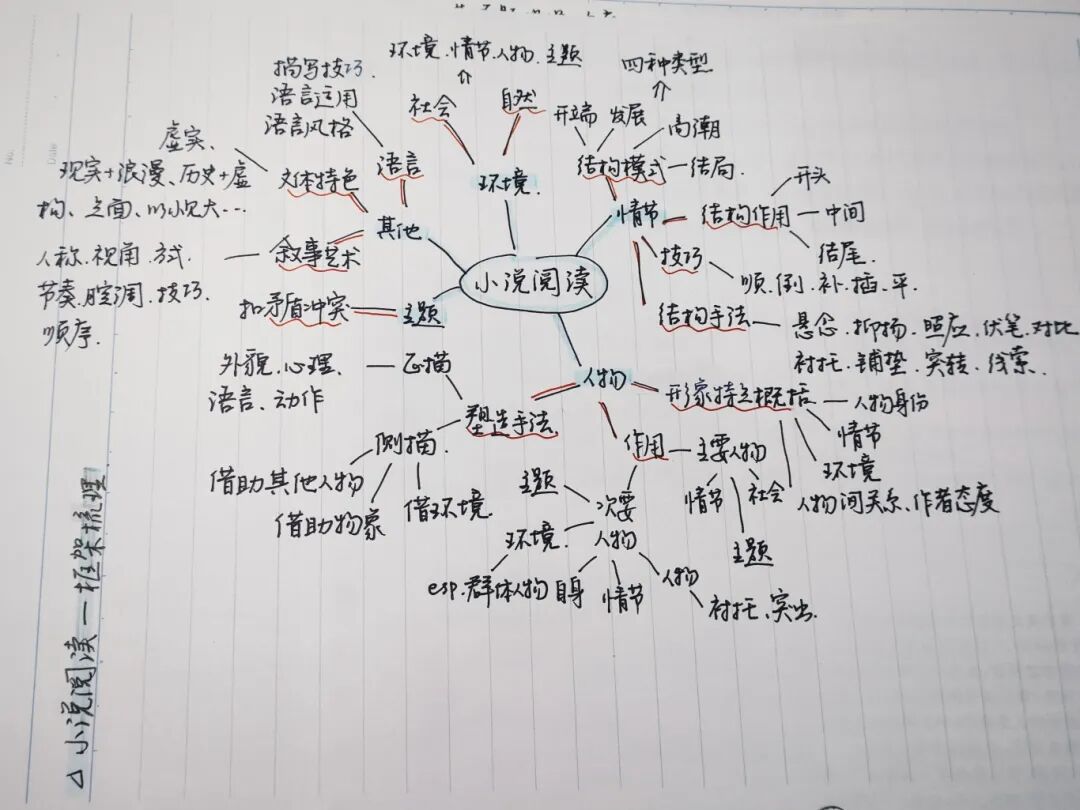 △小说阅读—框架梳理
小说阅读
环境
社会
自然
环境.情节.人物.主题
情节
结构模式
开端
发展
高潮
结局.
四种类型
结构作用
开头
中间
结尾.
技巧
顺.倒.补.插.平.
结构手法
悬念.抑扬.照应.伏笔.对比
衬托.铺垫.突转.线索.
人物
形象特点概括
人物身份
情节
环境
人物间关系、作者态度
作用
主要人物
情节
社会
主题
次要
人物
主题
环境.
esp.群体人物
自身
情节
人物
衬托、突出.
塑造手法
正描
外貌.心理、
语言、动作
侧描.
借助其他人物
借助物象
借环境
主题
扣矛盾冲突
其他
语言
描写技巧.
语言运用
语言风格
文体特色
虚实、
现实+浪漫、历史+虚
构、点面、以小见大…
叙事艺术
人称.视角.方式.
节奏.腔调.技巧.
顺序.